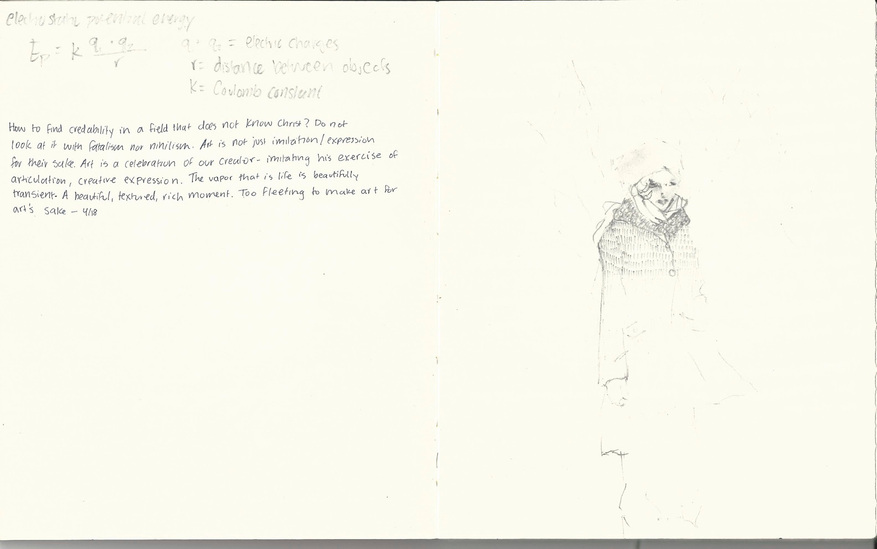 electrostatic potential energy
Ep = k q · q2 / r
q · q2 = electric charges
r = distance between objects
K = Coulomb constant
How to find credability in a field that does not know Christ? Do not
look at it with fatalism nor nihilism. Art is not just imitation/expression
for their sake. Art is a celebration of our Creator - imitating his exercise of
articulation, creative expression. The vapor that is life is beautifully
transient. A beautiful, textured, rich moment. Too fleeting to make art for
art's sake - 4/18